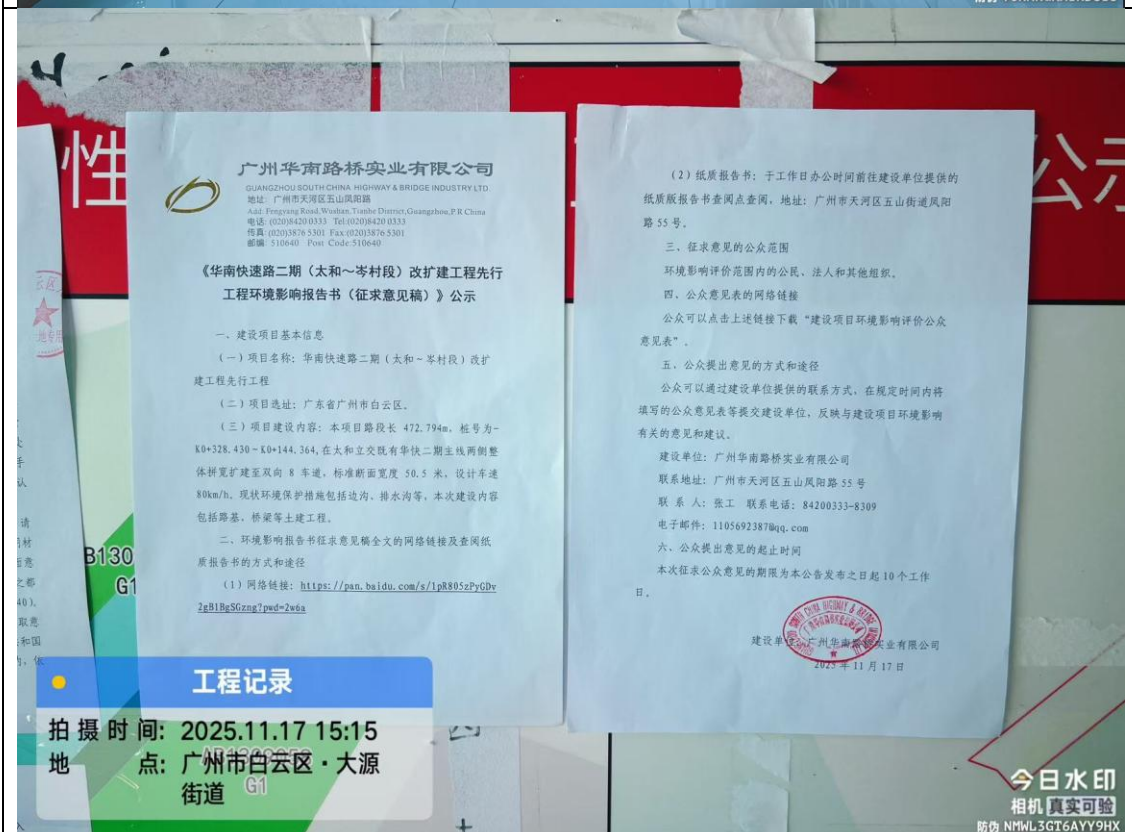 性
公示
广州华南路桥实业有限公司
GUANGZHOU SOUTH CHINA HIGHWAY & BRIDGE INDUSTRY LTD.
地址: 广州市天河区五山凤阳路
Add: Fengyang Road, Wushan, Tianhe District, Guangzhou, P.R China
电话: (020)8420 0333 Tel:(020)8420 0333
传真: (020)3876 5301 Fax:(020)3876 5301
邮编: 510640 Post Code:510640
《华南快速路二期（太和～岑村段）改扩建工程先行
工程环境影响报告书（征求意见稿）》公示
一、建设项目基本信息
（一）项目名称：华南快速路二期（太和～岑村段）改扩
建工程先行工程
（二）项目选址：广东省广州市白云区。
（三）项目建设内容：本项目路段长 472.794m，桩号为-
K0+328.430~K0+144.364,在太和立交既有华快二期主线两侧整
体拼宽扩建至双向 8 车道，标准断面宽度 50.5 米，设计车速
80km/h。现状环境保护措施包括边沟、排水沟等，本次建设内容
包括路基、桥梁等土建工程。
二、环境影响报告书征求意见稿全文的网络链接及查阅纸
质报告书的方式和途径
（1）网络链接：https://pan.baidu.com/s/1pR805zPyGDv
2gB1BgSGzng?pwd=2w6a
（2）纸质报告书：于工作日办公时间前往建设单位提供的
纸质版报告书查阅点查阅，地址：广州市天河区五山街道凤阳
路 55 号。
三、征求意见的公众范围
环境影响评价范围内的公民、法人和其他组织。
四、公众意见表的网络链接
公众可以点击上述链接下载“建设项目环境影响评价公众
意见表”。
五、公众提出意见的方式和途径
公众可以通过建设单位提供的联系方式，在规定时间内将
填写的公众意见表等提交建设单位，反映与建设项目环境影响
有关的意见和建议。
建设单位：广州华南路桥实业有限公司
联系地址：广州市天河区五山凤阳路 55 号
联 系 人：张工 联系电话：84200333-8309
电子邮件：1105692387@qq.com
六、公众提出意见的起止时间
本次征求公众意见的期限为本公告发布之日起 10 个工作
日。
建设单位：广州华南路桥实业有限公司
2025 年 11 月 17 日
B130
G1
工程记录
拍 摄 时 间: 2025.11.17 15:15
地 点: 广州市白云区·大源
街道
G1
今日水印
相机 真实可验
防伪 NMWL3GT6AYY9HX